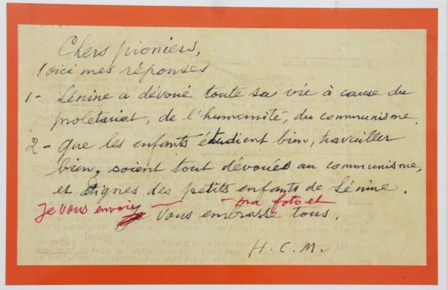 Chers pioniers,
voici mes réponses
1- Lénine a dévoué toute sa vie à cause du
prolétariat, de l'humanité, du communisme.
2- Que les enfants étudient bien, travailler
bien, soient tout dévoués au communisme,
et dignes des petits enfants de Lénine.
Je vous envoie ma foto et
vous embrasse tous.
H.C.M.